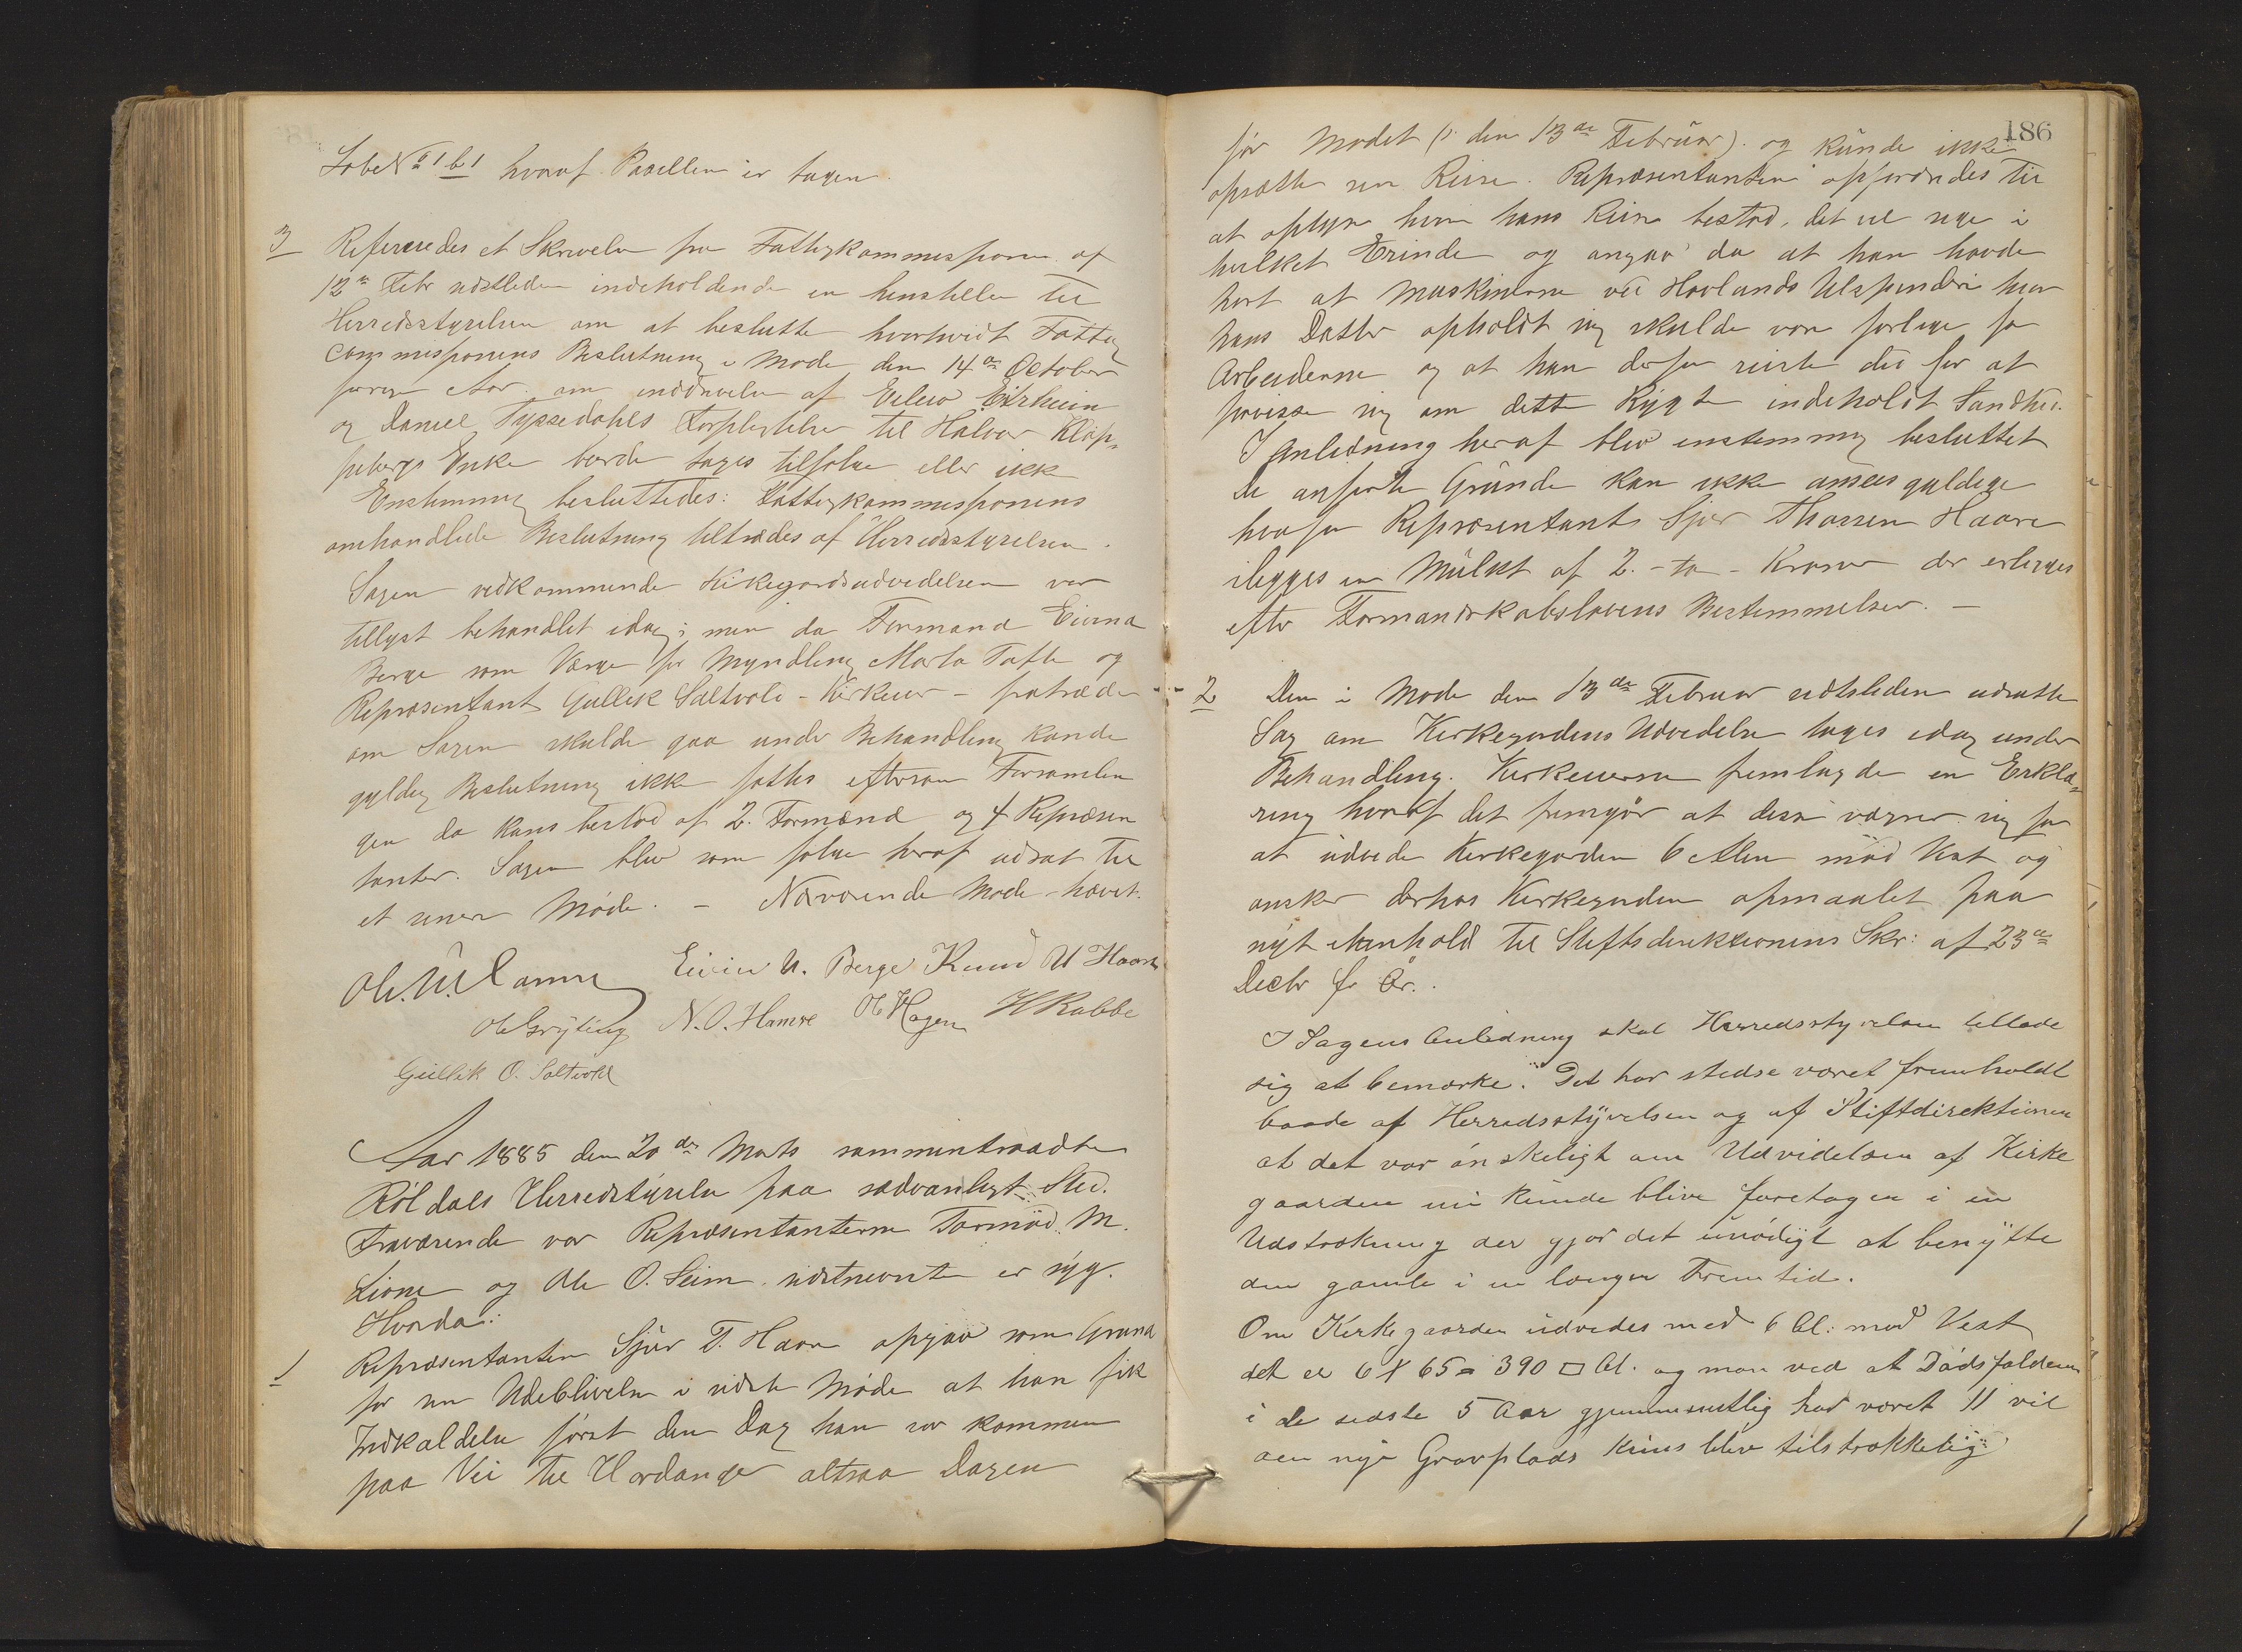 Løbe No 1 b1 hvoraf Parcellen er tagen.
3 Refereredes et Skrivelse fra Fattigkommissionen af
12te Febr sidstleden indeholdende en henstillen til
Herredsstyrelsen om at beslutte hvorvidt Fattig
commissionens Beslutning i Møde den 14de October
forrige Aar om inddrivelse af Eilev Eitrheim
og Daniel Tyssedahls Forpligtelse til Halvor Klop¬
pebergs Enke burde tages tilfølge eller ikke
Enstemmig besluttedes: Fattigkommissionens
omhandlede Beslutning tiltrædes af Herredsstyrelsen.
Sagen vedkommende Kirkegaardsudvidelsen var
tillyst behandlet idag; men da Formand Eivind
Berge som Værge for Myndling Marta Tufte og
Repræsentant Gullik Saltvold - Kirkeeier - fratræder
om Sagen skulde gaa under Behandling kunde
gyldig Beslutning ikke fattes eftersom Forsamlin
gen da kuns bestod af 2 Formænd og 4 Repræsen
tanter. Sagen blev som følge heraf udsat til
et senere Møde. - Nærværende Møde hævet.
Eivin U. Berge Knud U Haare
Ole Gryting N. O. Hamre Ole Hagen H Rabbe
Gullik O. Saltvold
Aar 1885 den 20de Marts sammentraadte
Röldals Herredstyrelse paa sædvanligt Sted.
Fraværende var Repræsentanterne Tormod M.
Lione og Ole O. Seim sidstnævnte er syg.
Hvorda:
1 Repræsentanten Sjur T. Haare opgav som Grund
for sin Udeblivelse i sidste Møde at han fik
Indkaldelse først den Dag han var kommen
paa Vei til Hardanger altsaa Dagen
186
før Mødet (ɔ: den 13de Februar). og kunde ikke
opsætte sin Reise. Repræsentanten opfordredes til
at oplyse hvori hans Reise bestod, det vil sige i
hvilket Erinde og angav da at han havde
hørt at Maskinerne ved Hovlands Uldspinderi hvor
hans Datter opholdt sig skulde være farlige for
Arbeiderne og at han derfor reiste did for at
forvisse sig om dette Rygte indeholdt Sandhed.
I Anledning heraf blev enstemmig besluttet
De anførte Grunde kan ikke ansees gyldige
hvorfor Repræsentant Sjur Thorsen Haare
ilegges en Mulkt af 2. - to - Kroner der erlegges
efter Formandskabslovens Bestemmelser. -
2 Den i Møde den 13de Februar sidstleden udsatte
Sag om Kirkegaardens Udvidelse toges idag under
Behandling. Kirkeeierne fremlagde en Erklæ¬
ring hvoraf det fremgår at disse vægrer sig for
at udvide Kirkegaarden 6 Alen mod Vest og
ønsker derhos Kirkegaarden opmaalet paa
nyt i henhold til Stiftsdirektionens Skr: af 23de
Decbr f. Ar.
I Sagens Anledning skal Herredsstyrelsen tillade
sig at bemærke: Det har stedse været fremholdt
baade af Herredsstyrelsen og af Stiftdirektionen
at det var ønskeligt om Udvidelsen af Kirke
gaarden nu kunde blive foretagen i en
Udstrækning der gjør det unødigt at benytte
den gamle i en længer Fremtid.
Om Kirkegaarden udvides med 6 Al: mod Vest
det er 6 X 65 = 390 □ Al. og man ved at Dødsfaldene
i de sidste 5 Aar gjennemsnitlig har været 11 vil
den nye Gravplads kuns blive tilstrækkelig